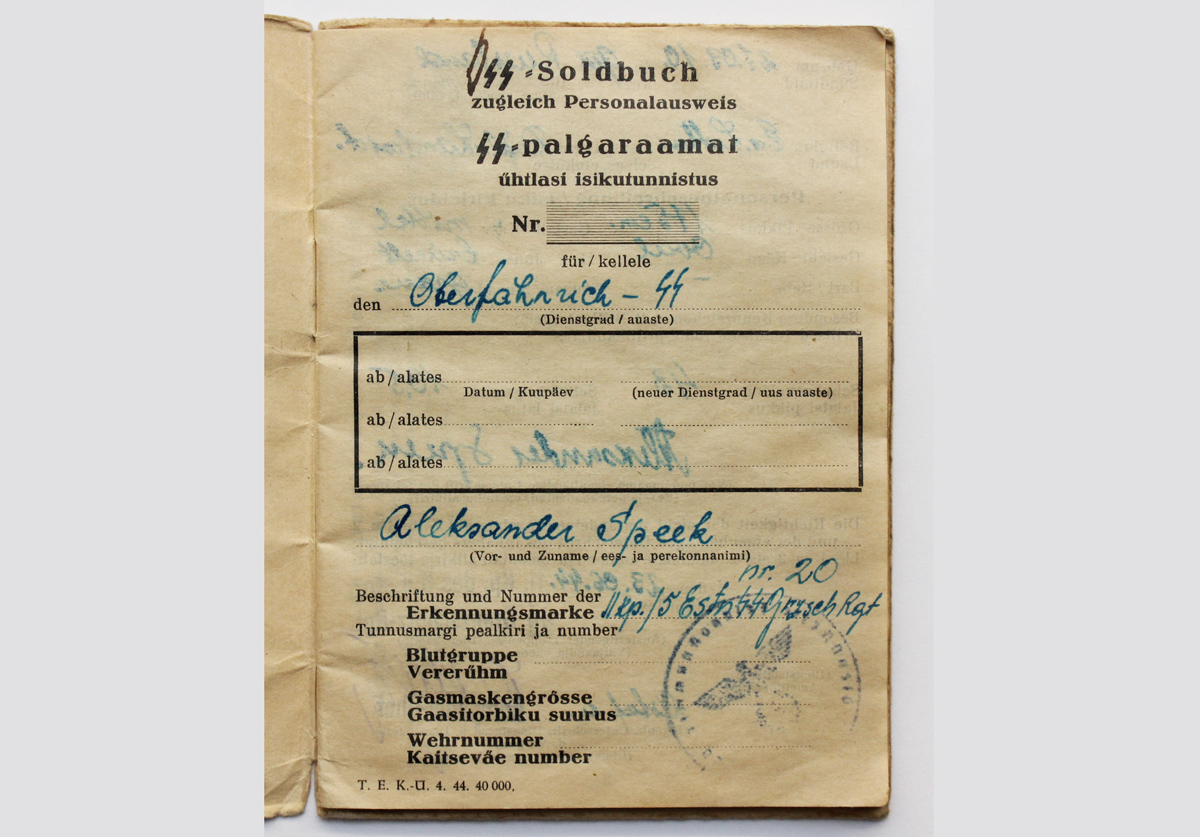 SS-Soldbuch
zugleich Personalausweis
SS-palgaraamat
űhtlasi isikutunnistus
Nr.
für / kellele
den Oberfähnrich – SS
(Dienstgrad / auaste)
ab / alates
Datum / Kuupäev (neuer Dienstgrad / uus auaste)
ab / alates
ab / alates
Aleksander Speek
(Vor- und Zuname / ees- ja perekonnanimi)
nr. 20
Beschriftung und Nummer der
Erkennungsmarke 11 kp./5 Estn SS Rgt
Tunnusmargi pealkiri ja number
Blutgruppe
Vererűhm
Gasmaskengrôsse
Gaasitorbiku suurus
Wehrnummer
Kaitseväe number
T. E. K.-Ü. 4. 44. 40 000.